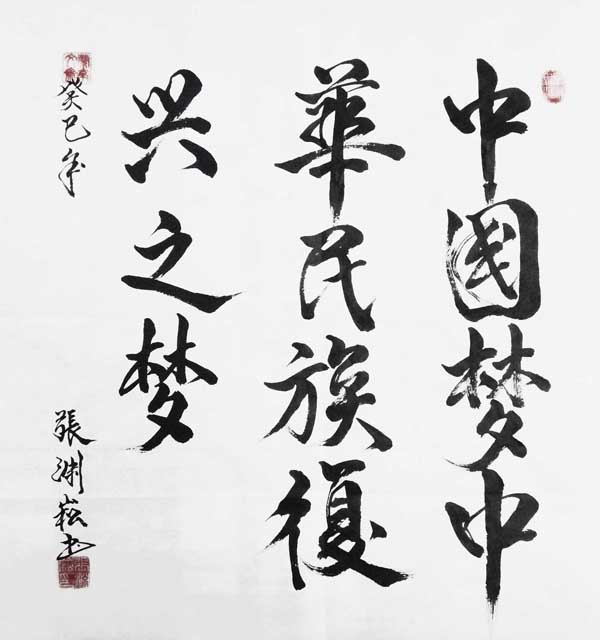 中國梦中
華民族復
兴之梦
癸巳年
張渊崧书